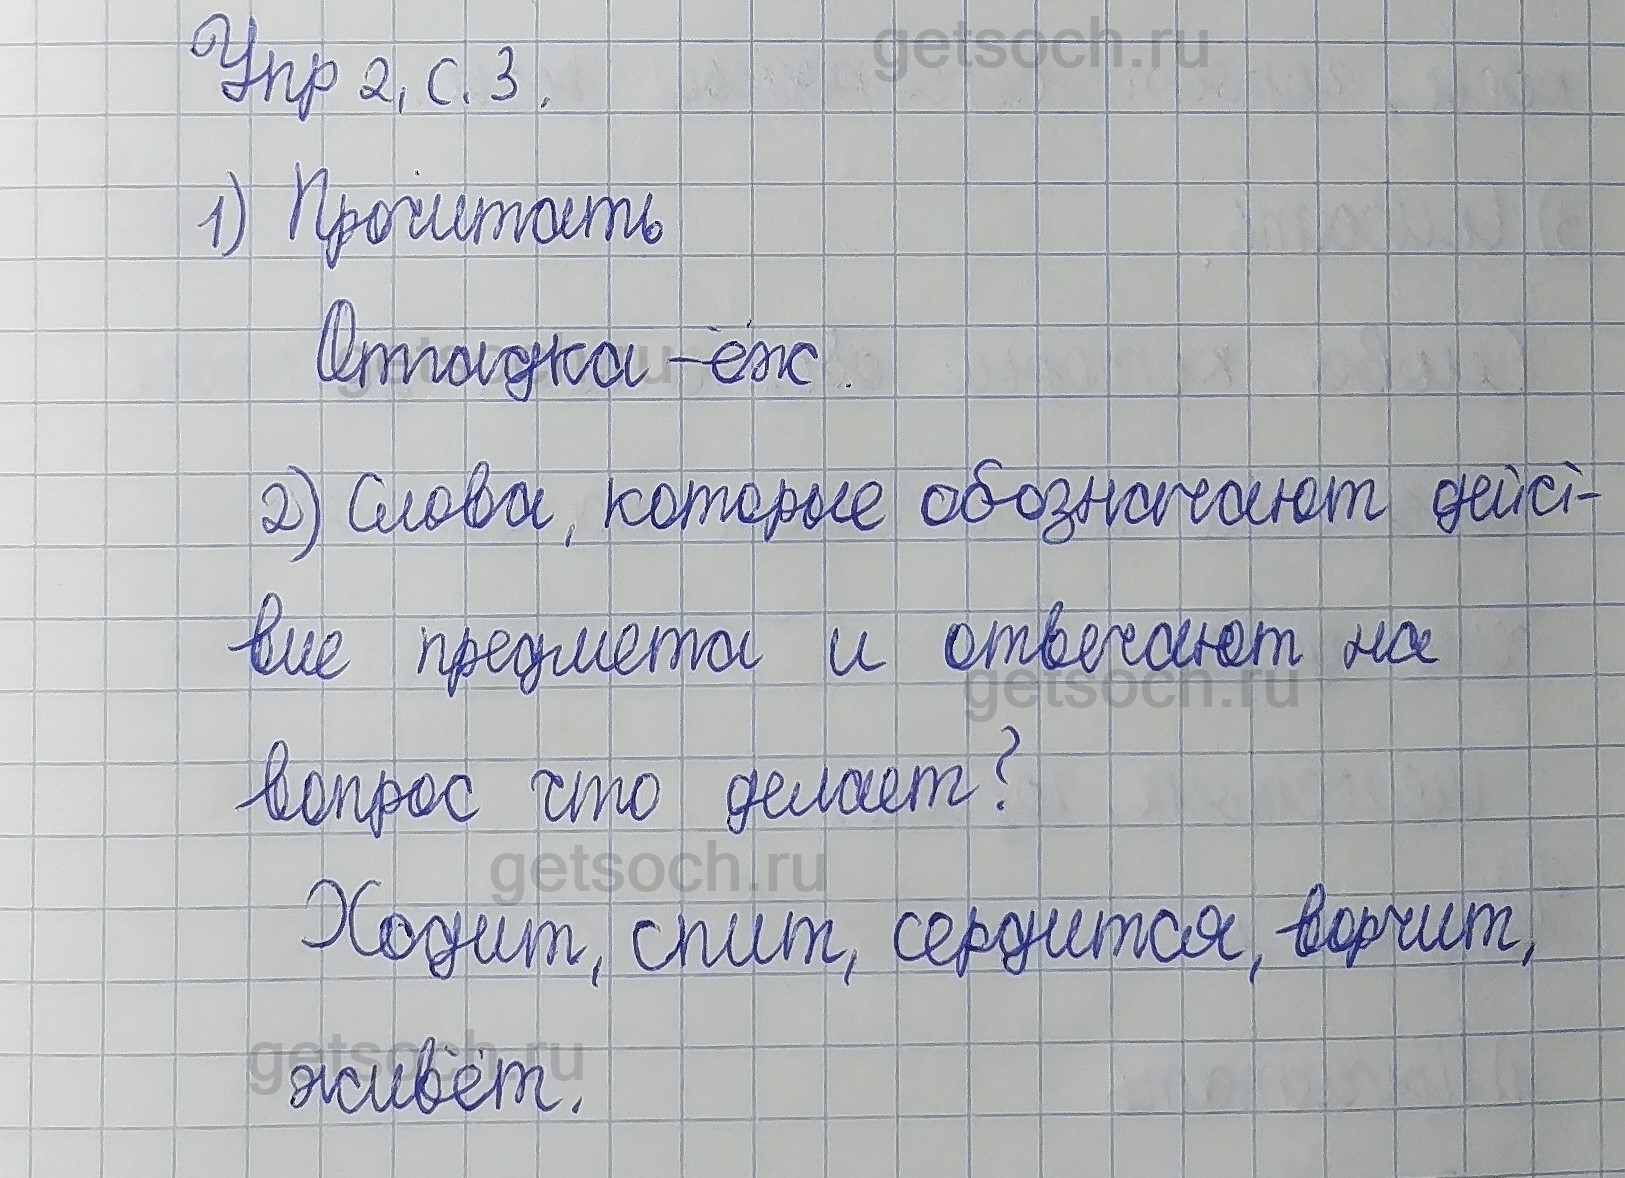 getsoch.ru
Упр 2, с. 3.
1) Прочитать
Отгадка - ёж.
getsoch.ru
2) Слова, которые обозначают дейст-
вие предмета и отвечают на
getsoch.ru
вопрос что делает?
getsoch.ru
Ходит, спит, сердится, ворчит,
getsoch.ru
живёт.